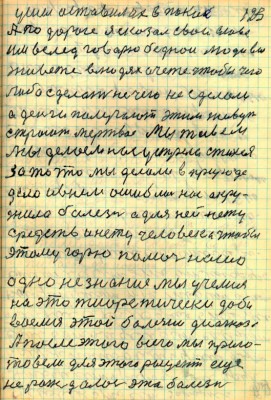 ушли оставили их в покое
125
А по дороге я сказал свои слова
им вслед говорю бедной люди вы
живете в людях а чего чтобы чего
либо сделать ничего не сделали
а деньги получают этим живут
строют мертвое Мы таким
мы делаем
за то что мы делали в природе
дело а в нем ошибка нас окру-
жила болезн а для ней нету
средств и нету человека чтобы
этому горю помоч наше
одно незнание мы учения
на это тиоретически доби
лось этой болезни диагноз
А после этого всего мы приго-
товели для этого рыцепт еще
не раж далос эта болезн